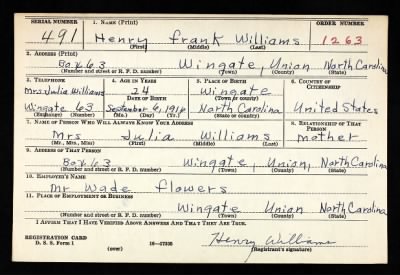 SERIAL NUMBER 1. NAME (Print) ORDER NUMBER
491 Henry frank Williams 1263
(First) (Middle) (Last)
2. ADDRESS (Print)
Box 63 Wingate, Union North Carolina
(Number and street or R. F. D. number) (Town) (County) (State)
3. TELEPHONE 4. AGE IN YEARS 5. PLACE OF BIRTH 6. COUNTRY OF CITIZENSHIP
Mrs. Julia Williams 24 Wingate
DATE OF BIRTH (Town or county)
Wingate 63 September 6, 1916 North Carolina United States
(Exchange) (Number) (Mo.) (Day) (Yr.) (State or country)
7. NAME OF PERSON WHO WILL ALWAYS KNOW YOUR ADDRESS 8. RELATIONSHIP OF THAT PERSON
Mrs Julia Williams mother
(Mr., Mrs., Miss) (First) (Middle) (Last)
9. ADDRESS OF THAT PERSON
Box 63 Wingate, Union, North Carolina
(Number and street or R. F. D. number) (Town) (County) (State)
10. EMPLOYER'S NAME
Mr. Wade flowers
11. PLACE OF EMPLOYMENT OR BUSINESS
Wingate Union North Carolina
(Number and street or R. F. D. number) (Town) (County) (State)
I AFFIRM THAT I HAVE VERIFIED ABOVE ANSWERS AND THAT THEY ARE TRUE.
REGISTRATION CARD
D. S. S. Form 1 (over) 16—17105 Henry Williams
(Registrant's signature)